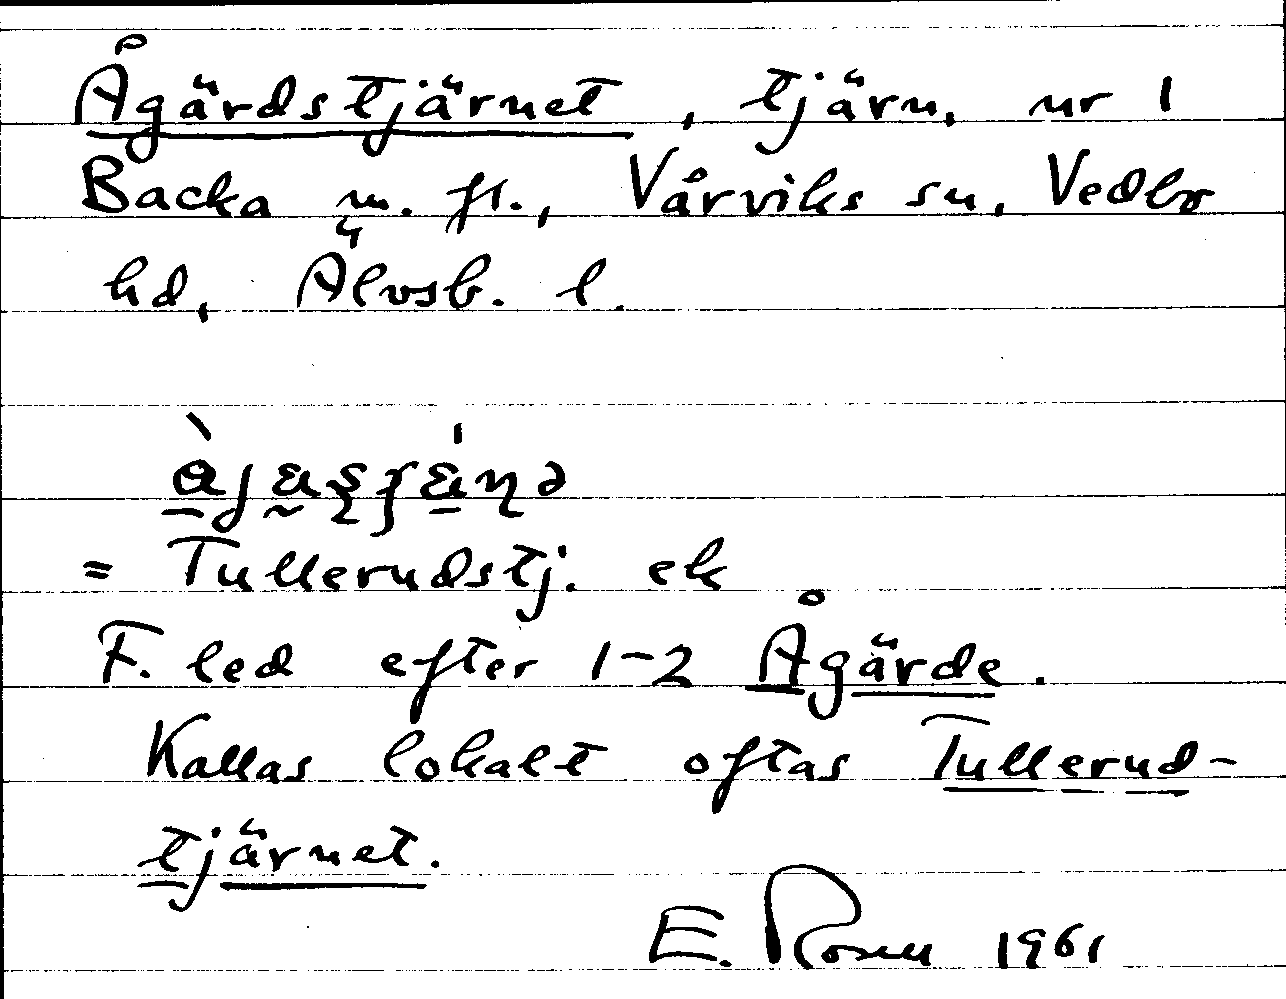 Ågärdstjärnet, tjärn, nr 1
Backa m. fl., Vårviks sn, Vedbo
hd, Älvsb. l.
= Tullerudstj. ek
F. led efter 1-2 Ågärde.
Kallas lokalt oftas Tullerud-
tjärnet.
E. Rosen 1961